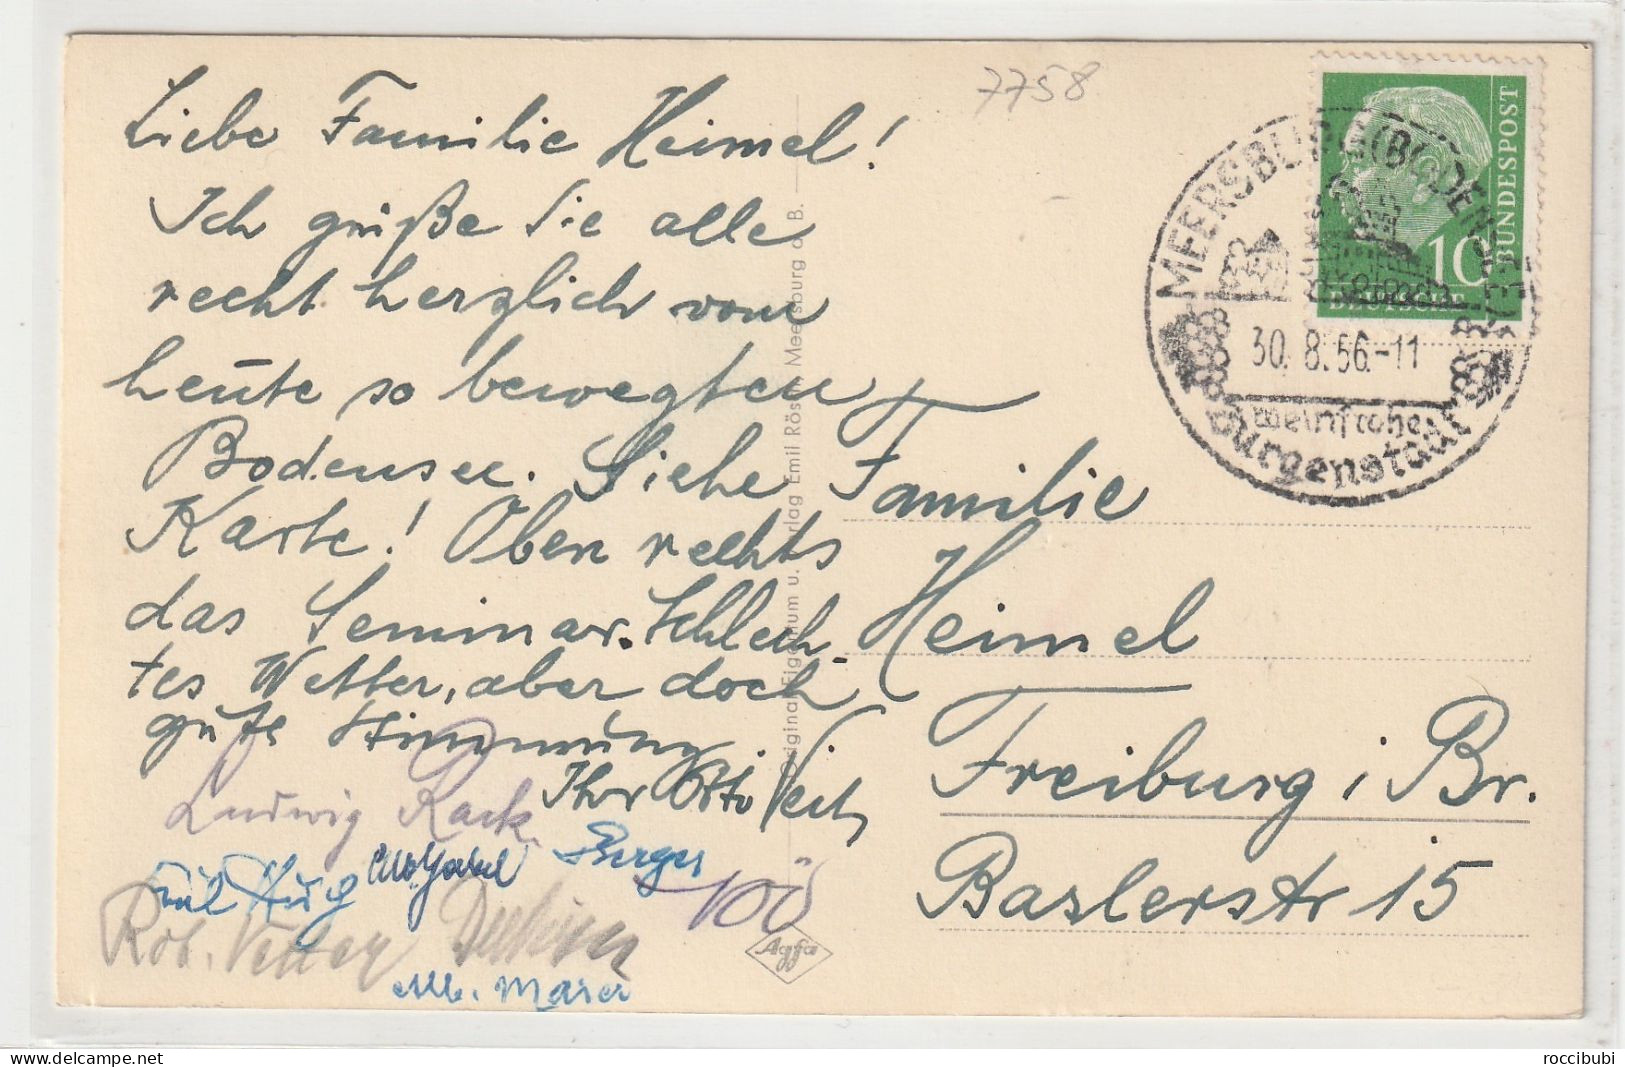 7758
Liebe Familie Heimel!
Ich grüße Sie alle
recht herzlich vom
heute so bewegten
Bodensee. Siehe
Karte! Oben rechts
das Seminar. Schlech-
tes Wetter, aber doch
gute Stimmung.
Ihr Otto Veit
Ludwig Rack
Berger
Emil Hug
Rob. Vettay
Alb. Maier
Original Eigentum u. Verlag Emil Rösch Meersburg a. B.
Agfa
MEERSBURG (BODENSEE)
30.8.56.-11
weinfrohe
Burgenstadt
10
DEUTSCHE
BUNDESPOST
Familie
Heimel
Freiburg i Br.
Baslerstr 15
roccibubi